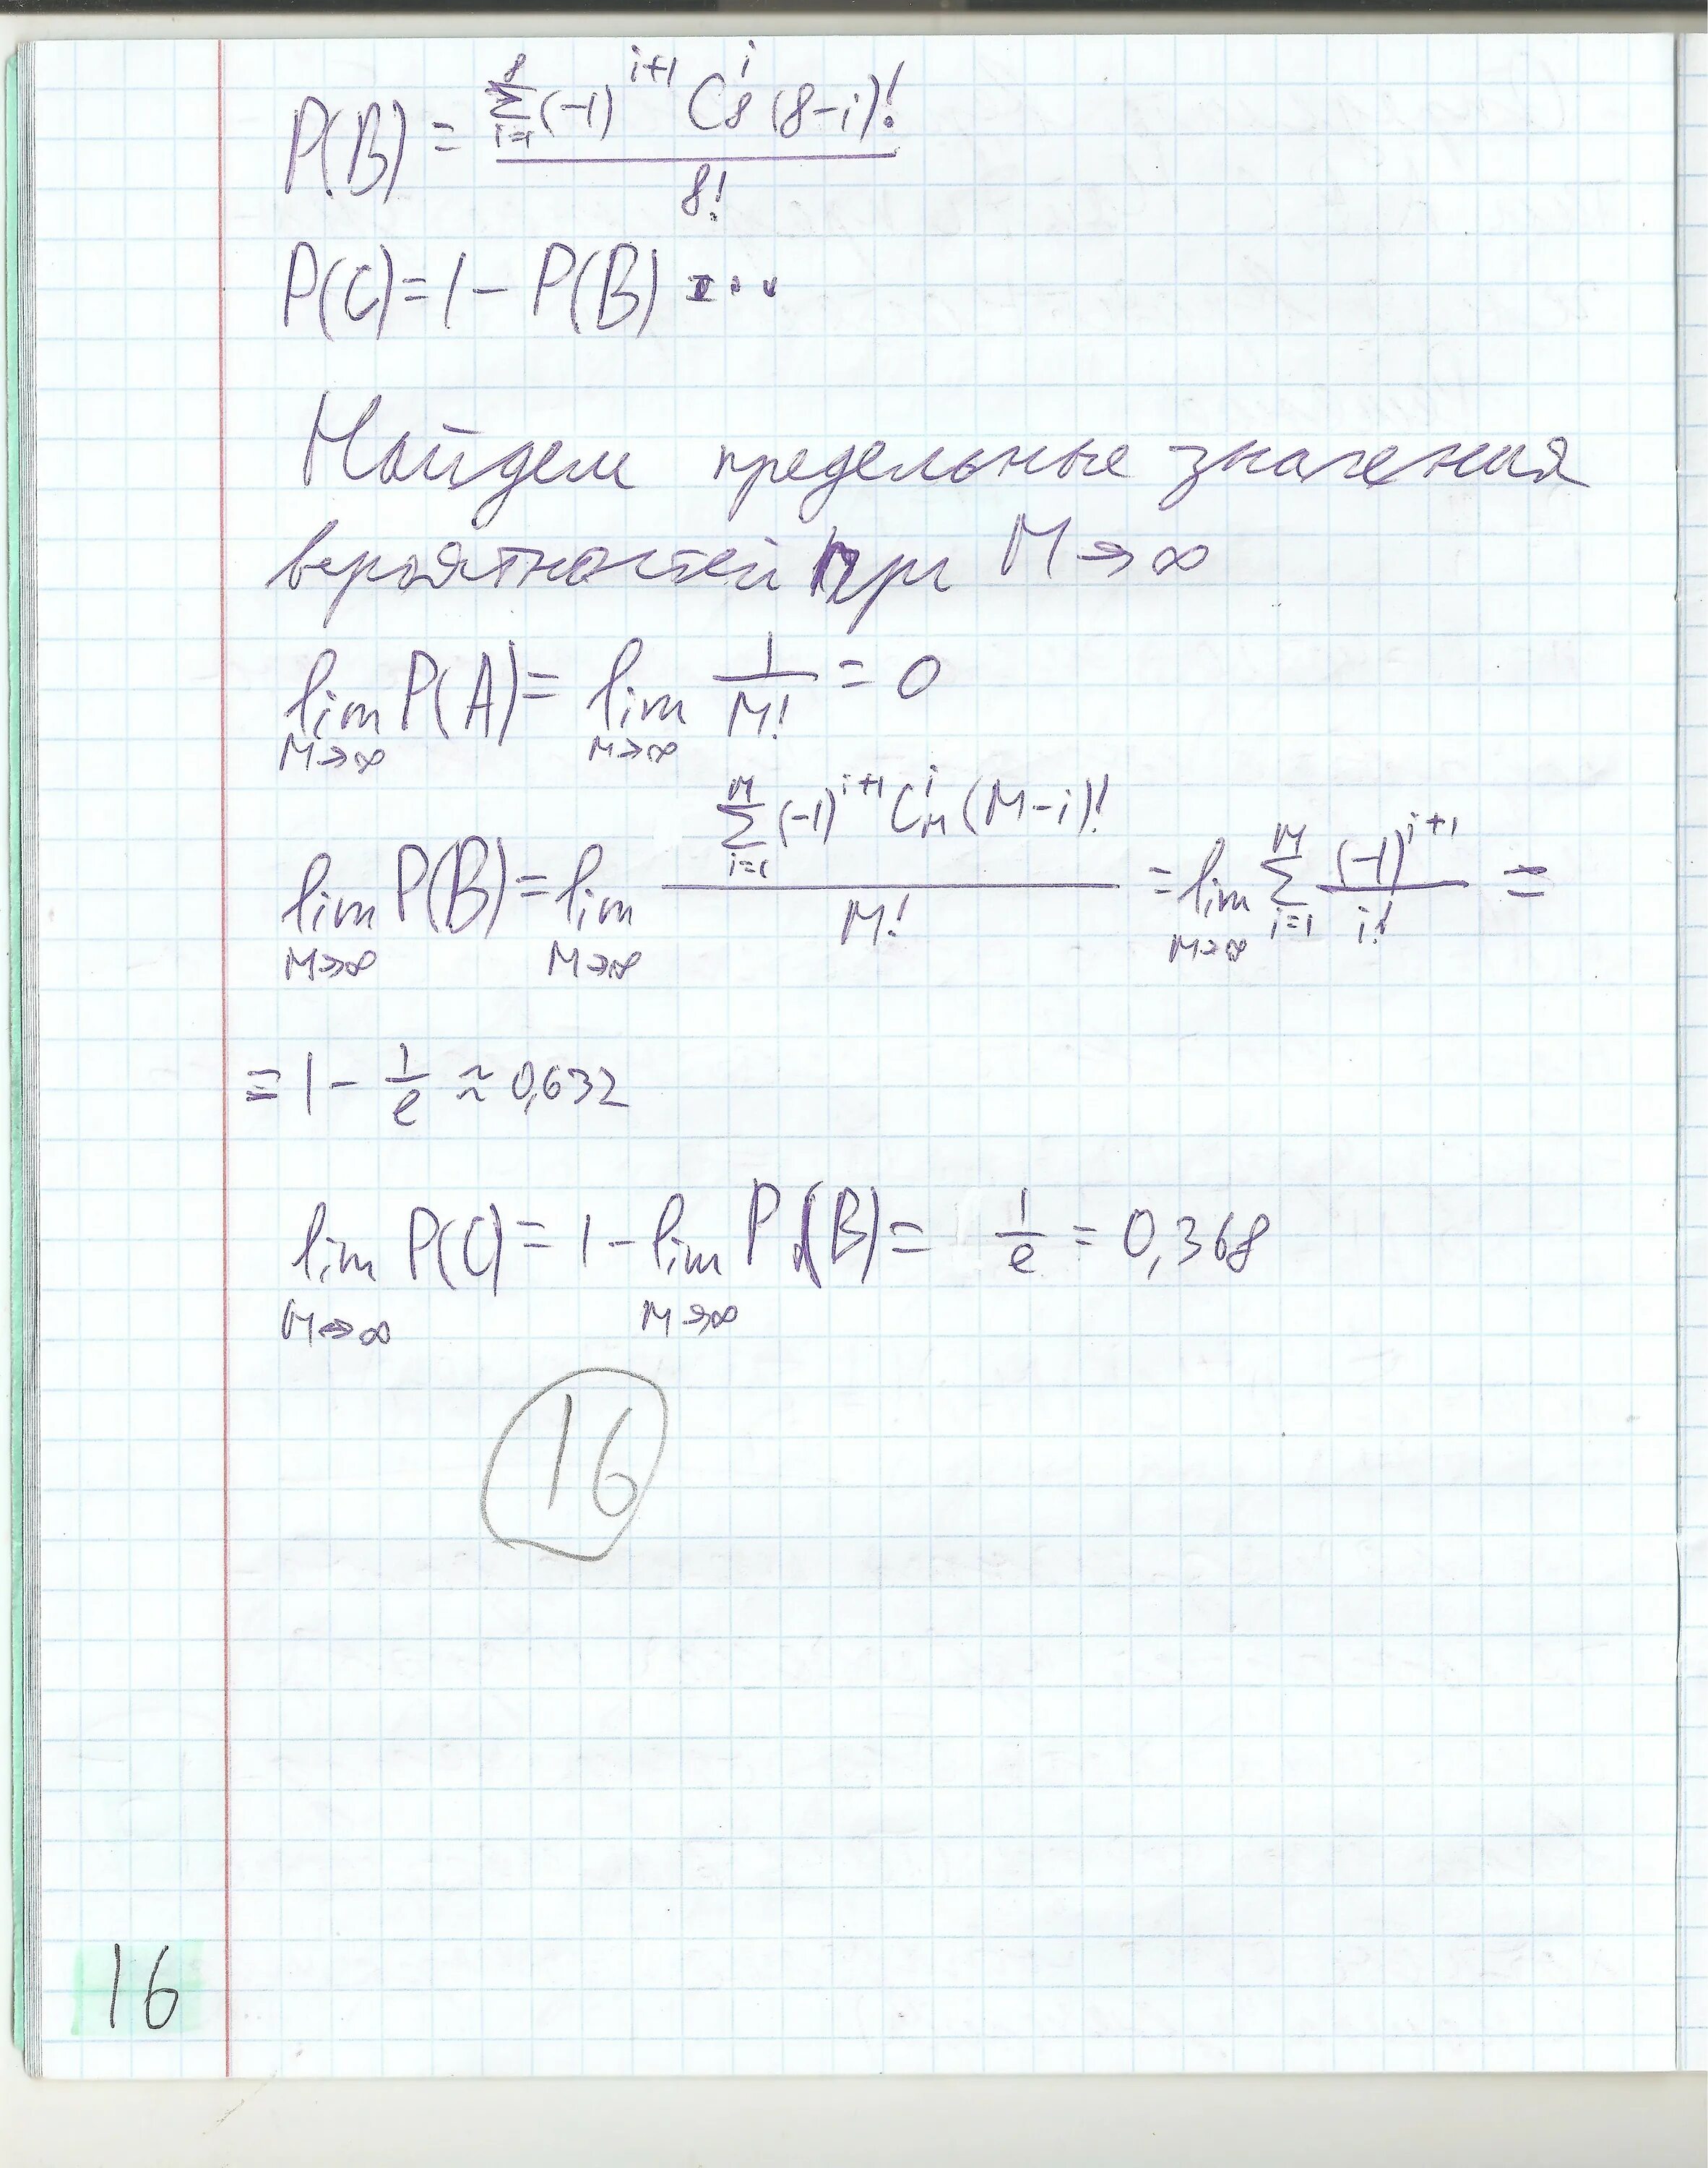 P(B) = \frac{\sum_{i=1}^{8} (-1)^{i+1} C_8^i (8-i)!}{8!}
P(C) = 1 - P(B) = ...
Найдем предельные значения
вероятностей при M → ∞
\lim_{M→∞} P(A) = \lim_{M→∞} \frac{1}{M!} = 0
\lim_{M→∞} P(B) = \lim_{M→∞} \frac{\sum_{i=1}^{M} (-1)^{i+1} C_M^i (M-i)!}{M!} = \lim_{M→∞} \sum_{i=1}^{M} \frac{(-1)^{i+1}}{i!} =
= 1 - \frac{1}{e} ≈ 0,632
\lim_{M→∞} P(C) = 1 - \lim_{M→∞} P(B) = \frac{1}{e} = 0,368
16
16